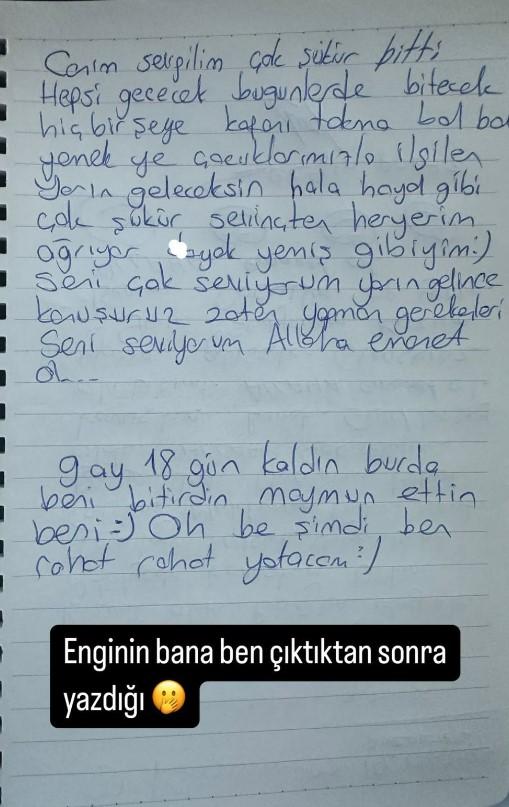 Canım sevgilim çok şükür bitti
Hepsi geçecek bugünlerde bitecek
hiçbirşeye kafanı takma bol bol
yemek ye çocuklarımızla ilgilen
Yarın geleceksin hala hayal gibi
çok şükür sevinçten heryerim
ağrıyor dayak yemiş gibiyim:)
Seni çok seviyorum yarın gelince
konuşuruz zaten yapman gerekenleri
Seni seviyorum Allaha emanet
ol...
9 ay 18 gün kaldın burda
beni bitirdin maymun ettin
beni=) Oh be şimdi ben
rahat rahat yatacam:)
Enginin bana ben çıktıktan sonra
yazdığı 🤭